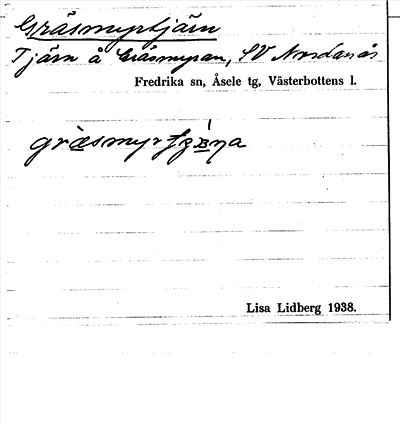 Gräsmyrtjärn
Tjärn å Gräsmyran, SV Nordanås
Fredrika sn, Åsele tg, Västerbottens l.
Lisa Lidberg 1938.